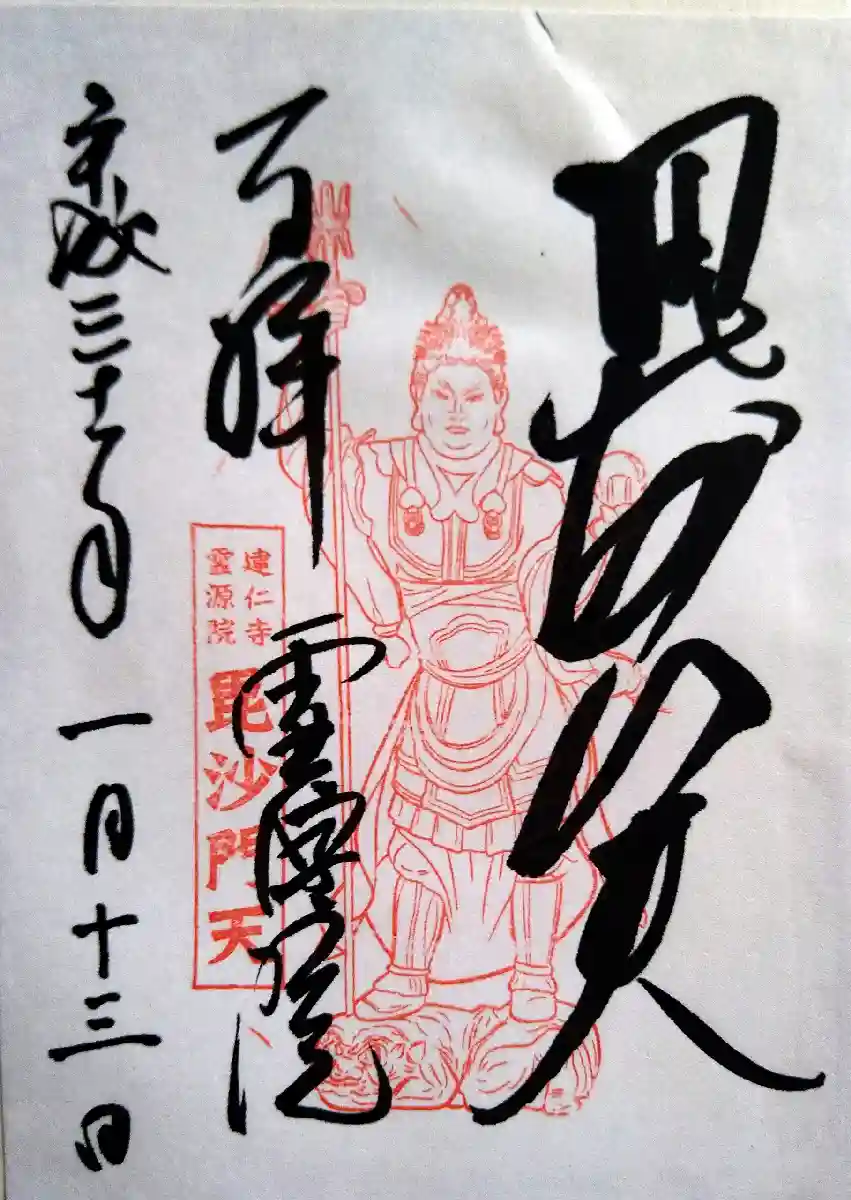 毘沙門天
百拝
靈源院
建仁寺
靈源院
毘沙門天
平成三十一年 一月十三日